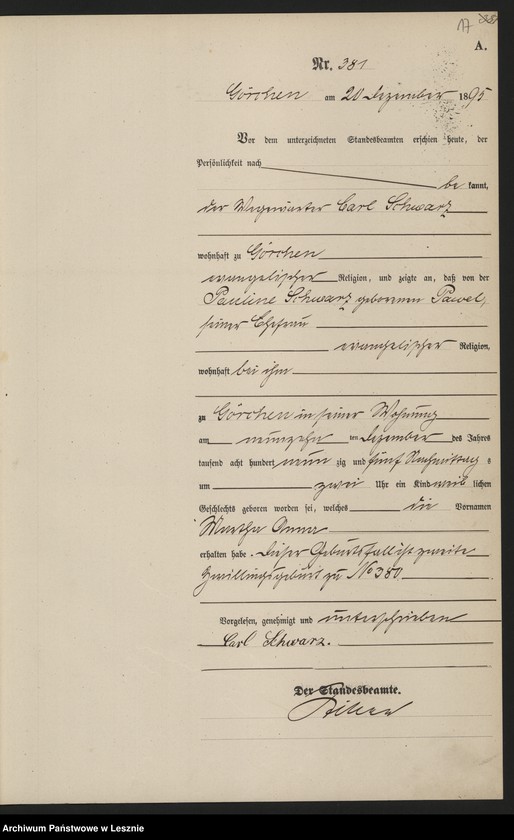 17
A.
Nr. 381
Görchen am 20 Dezember 1895
Vor dem unterzeichneten Standesbeamten erschien heute, der
Persönlichkeit nach
be kannt,
der Wegewärter Carl Schwarz
wohnhaft zu Görchen
evangelischer Religion, und zeigte an, daß von der
Pauline Schwarz geborenen Pawel,
seiner Ehefrau
evangelischer Religion,
wohnhaft bei ihm
zu Görchen in seiner Wohnung
am neunzehn ten Dezember des Jahres
tausend acht hundert neun zig und fünf Nachmittag s
um zwei Uhr ein Kind weib lichen
Geschlechts geboren worden sei, welches die Vornamen
Martha Anna
erhalten habe. Dieser Geburtsfall ist zweite
Zwillingsgeburt zu No 380
Vorgelesen, genehmigt und unterschrieben
Carl Schwarz.
Der Standesbeamte.
Archiwum Państwowe w Lesznie